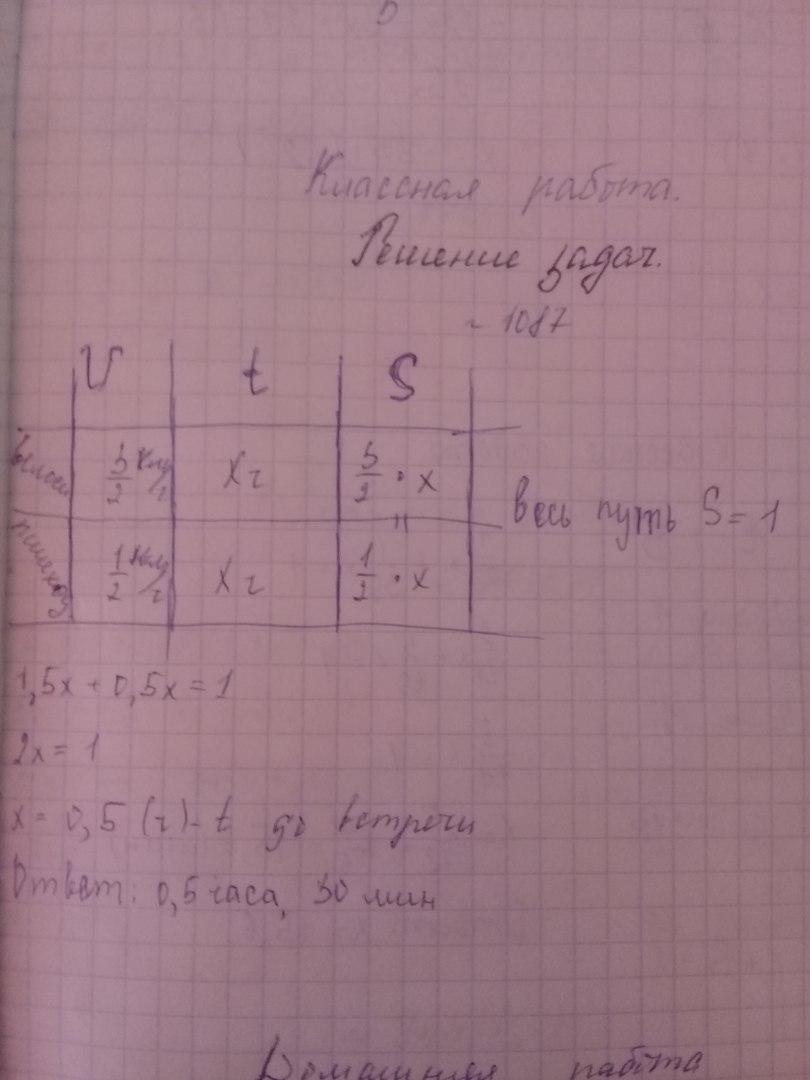 Классная работа.
Решение задач.
~ 1087
V t S
велос. 3/2 км/ч x ч 3/2 · x
пешеход 1/2 км/ч x ч 1/2 · x
весь путь S = 1
1,5x + 0,5x = 1
2x = 1
x = 0,5 (ч) - t до встречи
Ответ: 0,5 часа, 30 мин
Домашняя работа